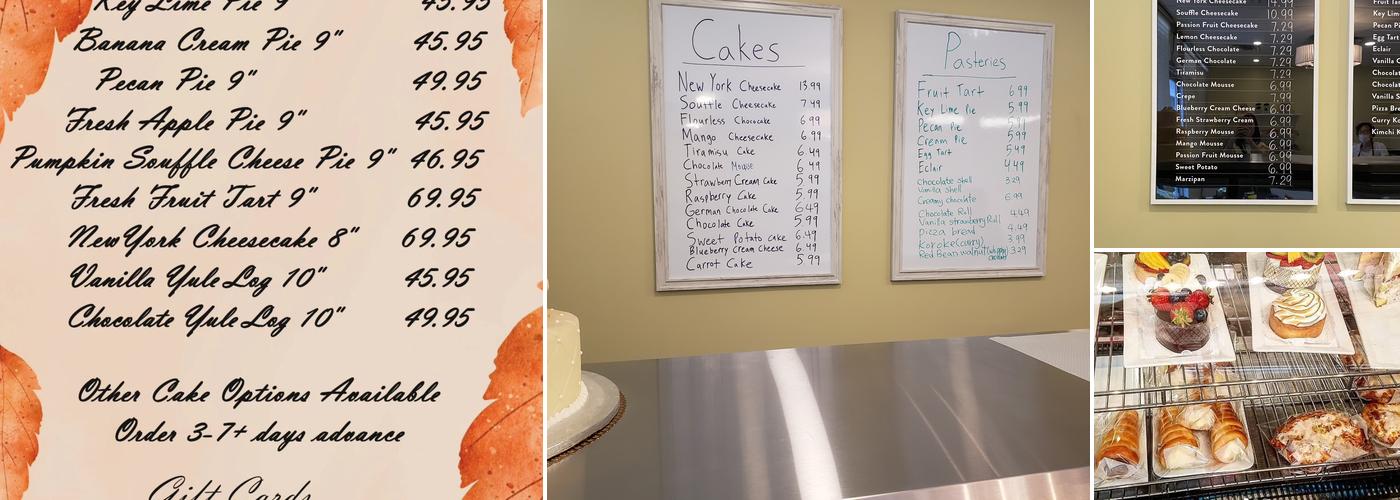 Key Lime Pie 9" 45.95
Banana Cream Pie 9" 45.95
Pecan Pie 9" 49.95
Fresh Apple Pie 9" 45.95
Pumpkin Souffle Cheese Pie 9" 46.95
Fresh Fruit Tart 9" 69.95
New York Cheesecake 8" 69.95
Vanilla Yule Log 10" 45.95
Chocolate Yule Log 10" 49.95
Other Cake Options Available
Order 3-7+ days advance
Gift Cards
Cakes
New York Cheesecake 13.99
Souffle Cheesecake 7.49
Flourless Chococake 6.99
Mango Cheesecake 6.99
Tiramisu Cake 6.49
Chocolate Mousse 6.49
Strawberri Cream Cake 5.99
Raspberry Cake 5.99
German Chocolate Cake 6.49
Chocolate Cake 5.99
Sweet Potato cake 6.49
Blueberry Cream Cheese 6.49
Carrot Cake 5.99
Pasteries
Fruit Tart 6.99
Key Lime Pie 5.99
Pecan Pie 5.99
Cream Pie 5.99
Egg Tart 5.49
Eclair 4.49
Chocolate shell 3.29
Vanilla shell
Creamy chocolate 6.99
Chocolate Roll 4.49
Vanilla strawberry Roll
pizza bread 4.49
Koroke(curry) 3.99
Red Bean walnut 3.29
New York Cheesecake 14.99
Souffle Cheesecake 10.99
Passion Fruit Cheesecake 7.29
Lemon Cheesecake 7.29
Flourless Chocolate 7.29
German Chocolate 7.29
Tiramisu 7.29
Chocolate Mousse 6.99
Crepe 7.99
Blueberry Cream Cheese 6.99
Fresh Strawberry Cream 6.99
Raspberry Mousse 6.99
Mango Mousse 6.99
Passion Fruit Mousse 6.99
Sweet Potato 6.99
Marzipan 7.29
Fruit Tar
Key Lim
Pecan Pi
Egg Tart
Eclair
Vanilla C
Chocolat
Chocola
Vanilla S
Pizza Bre
Curry Ko
Kimchi